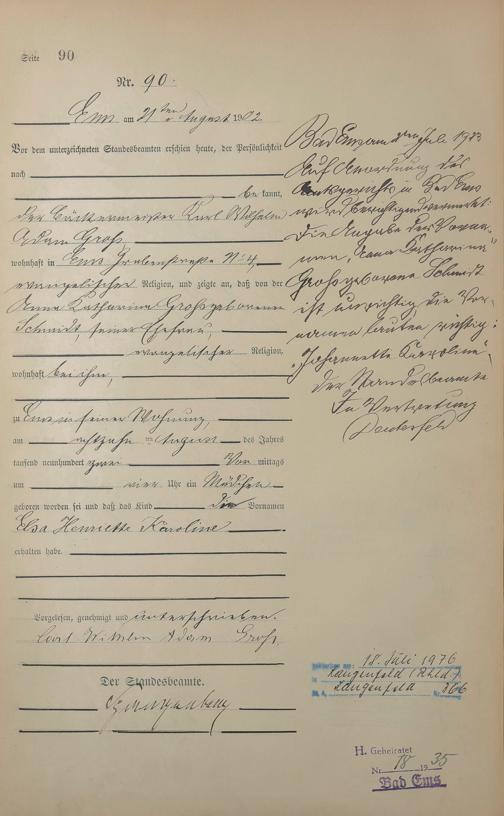 Seite 90
Nr. 90.
Ems am 21ten August 1902
Vor dem unterzeichneten Standesbeamten erschien heute, der Persönlichkeit
nach
bekannt,
der Bäckermeister Karl Wilhelm
Adam Groß,
wohnhaft in Ems Grabenstraße No 4,
evangelischer Religion, und zeigte an, daß von der
Anna Katharina Groß geborenen
Schmidt, seiner Ehefrau,
evangelischer Religion,
wohnhaft bei ihm,
zu Ems in seiner Wohnung,
am achtzehnten August des Jahres
tausend neunhundert zwei Vormittags
um vier Uhr ein Mädchen
geboren worden sei und daß das Kind die Vornamen
Elsa Henriette Karoline
erhalten habe.
Vorgelesen, genehmigt und unterschrieben.
Carl Wilhelm Adam Groß,
Der Standesbeamte.
Bad Ems am Juli 1933
Auf Anordnung des
Amtsgerichts in Bad Ems
wird berichtigend vermerkt:
Die Angabe der Vorna-
men „Anna Katharina"
Groß geborene Schmidt
ist unrichtig die Vor-
namen lauten richtig:
„Johannette Karoline",
Der Standesbeamte
In Vertretung
18. Juli 1976
Langenfeld (Rhld.)
Langenfeld Nr. 366
H. Geheiratet
Nr. 18 1935
Bad Ems